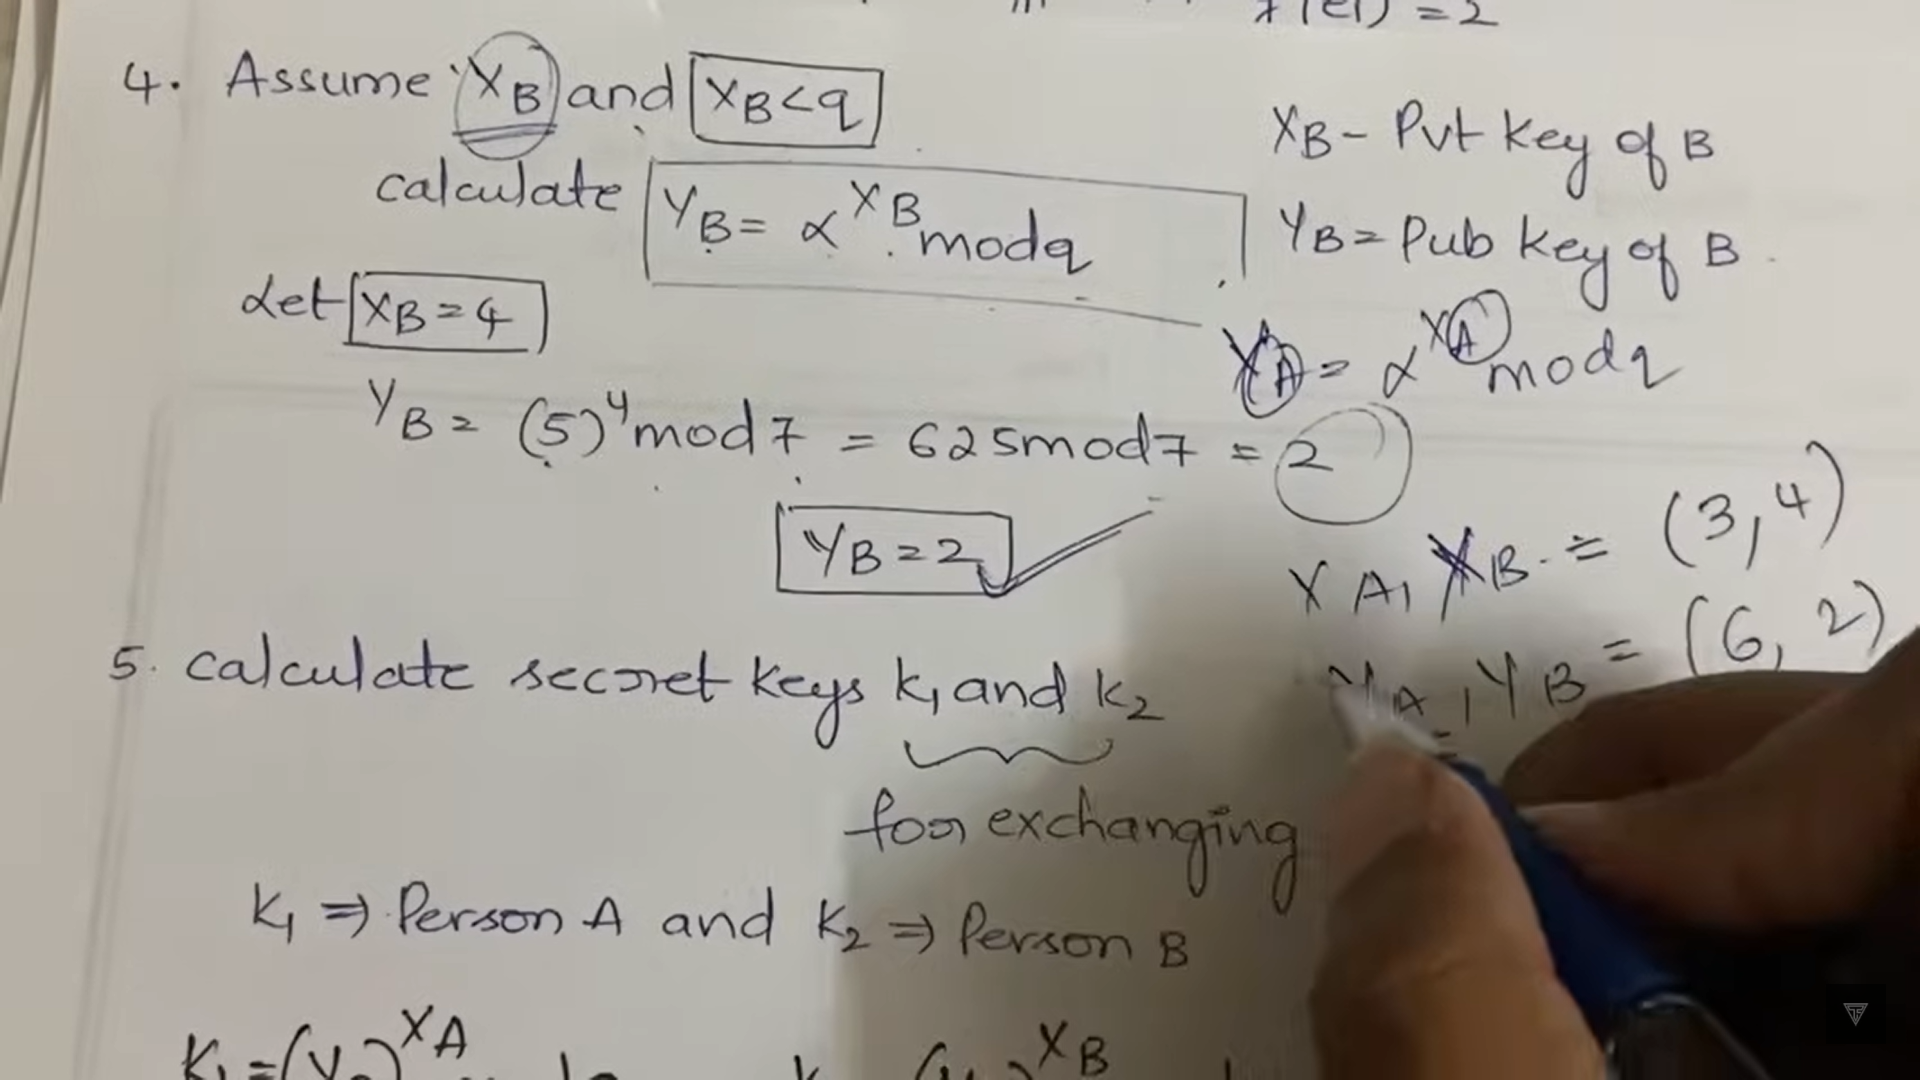 = 2
4. Assume XB and XB<q
calculate YB = α^XB mod q
Let XB = 4
YB = (5)^4 mod 7 = 625 mod 7 = 2
YB = 2
XB - Pvt key of B
YB = Pub key of B.
YA = α^XA mod q
XA, XB = (3, 4)
YA, YB = (6, 2)
5. calculate secret keys k1 and k2
for exchanging
k1 ⇒ Person A and k2 ⇒ Person B
K1 = (Y )^XA
k )^XB